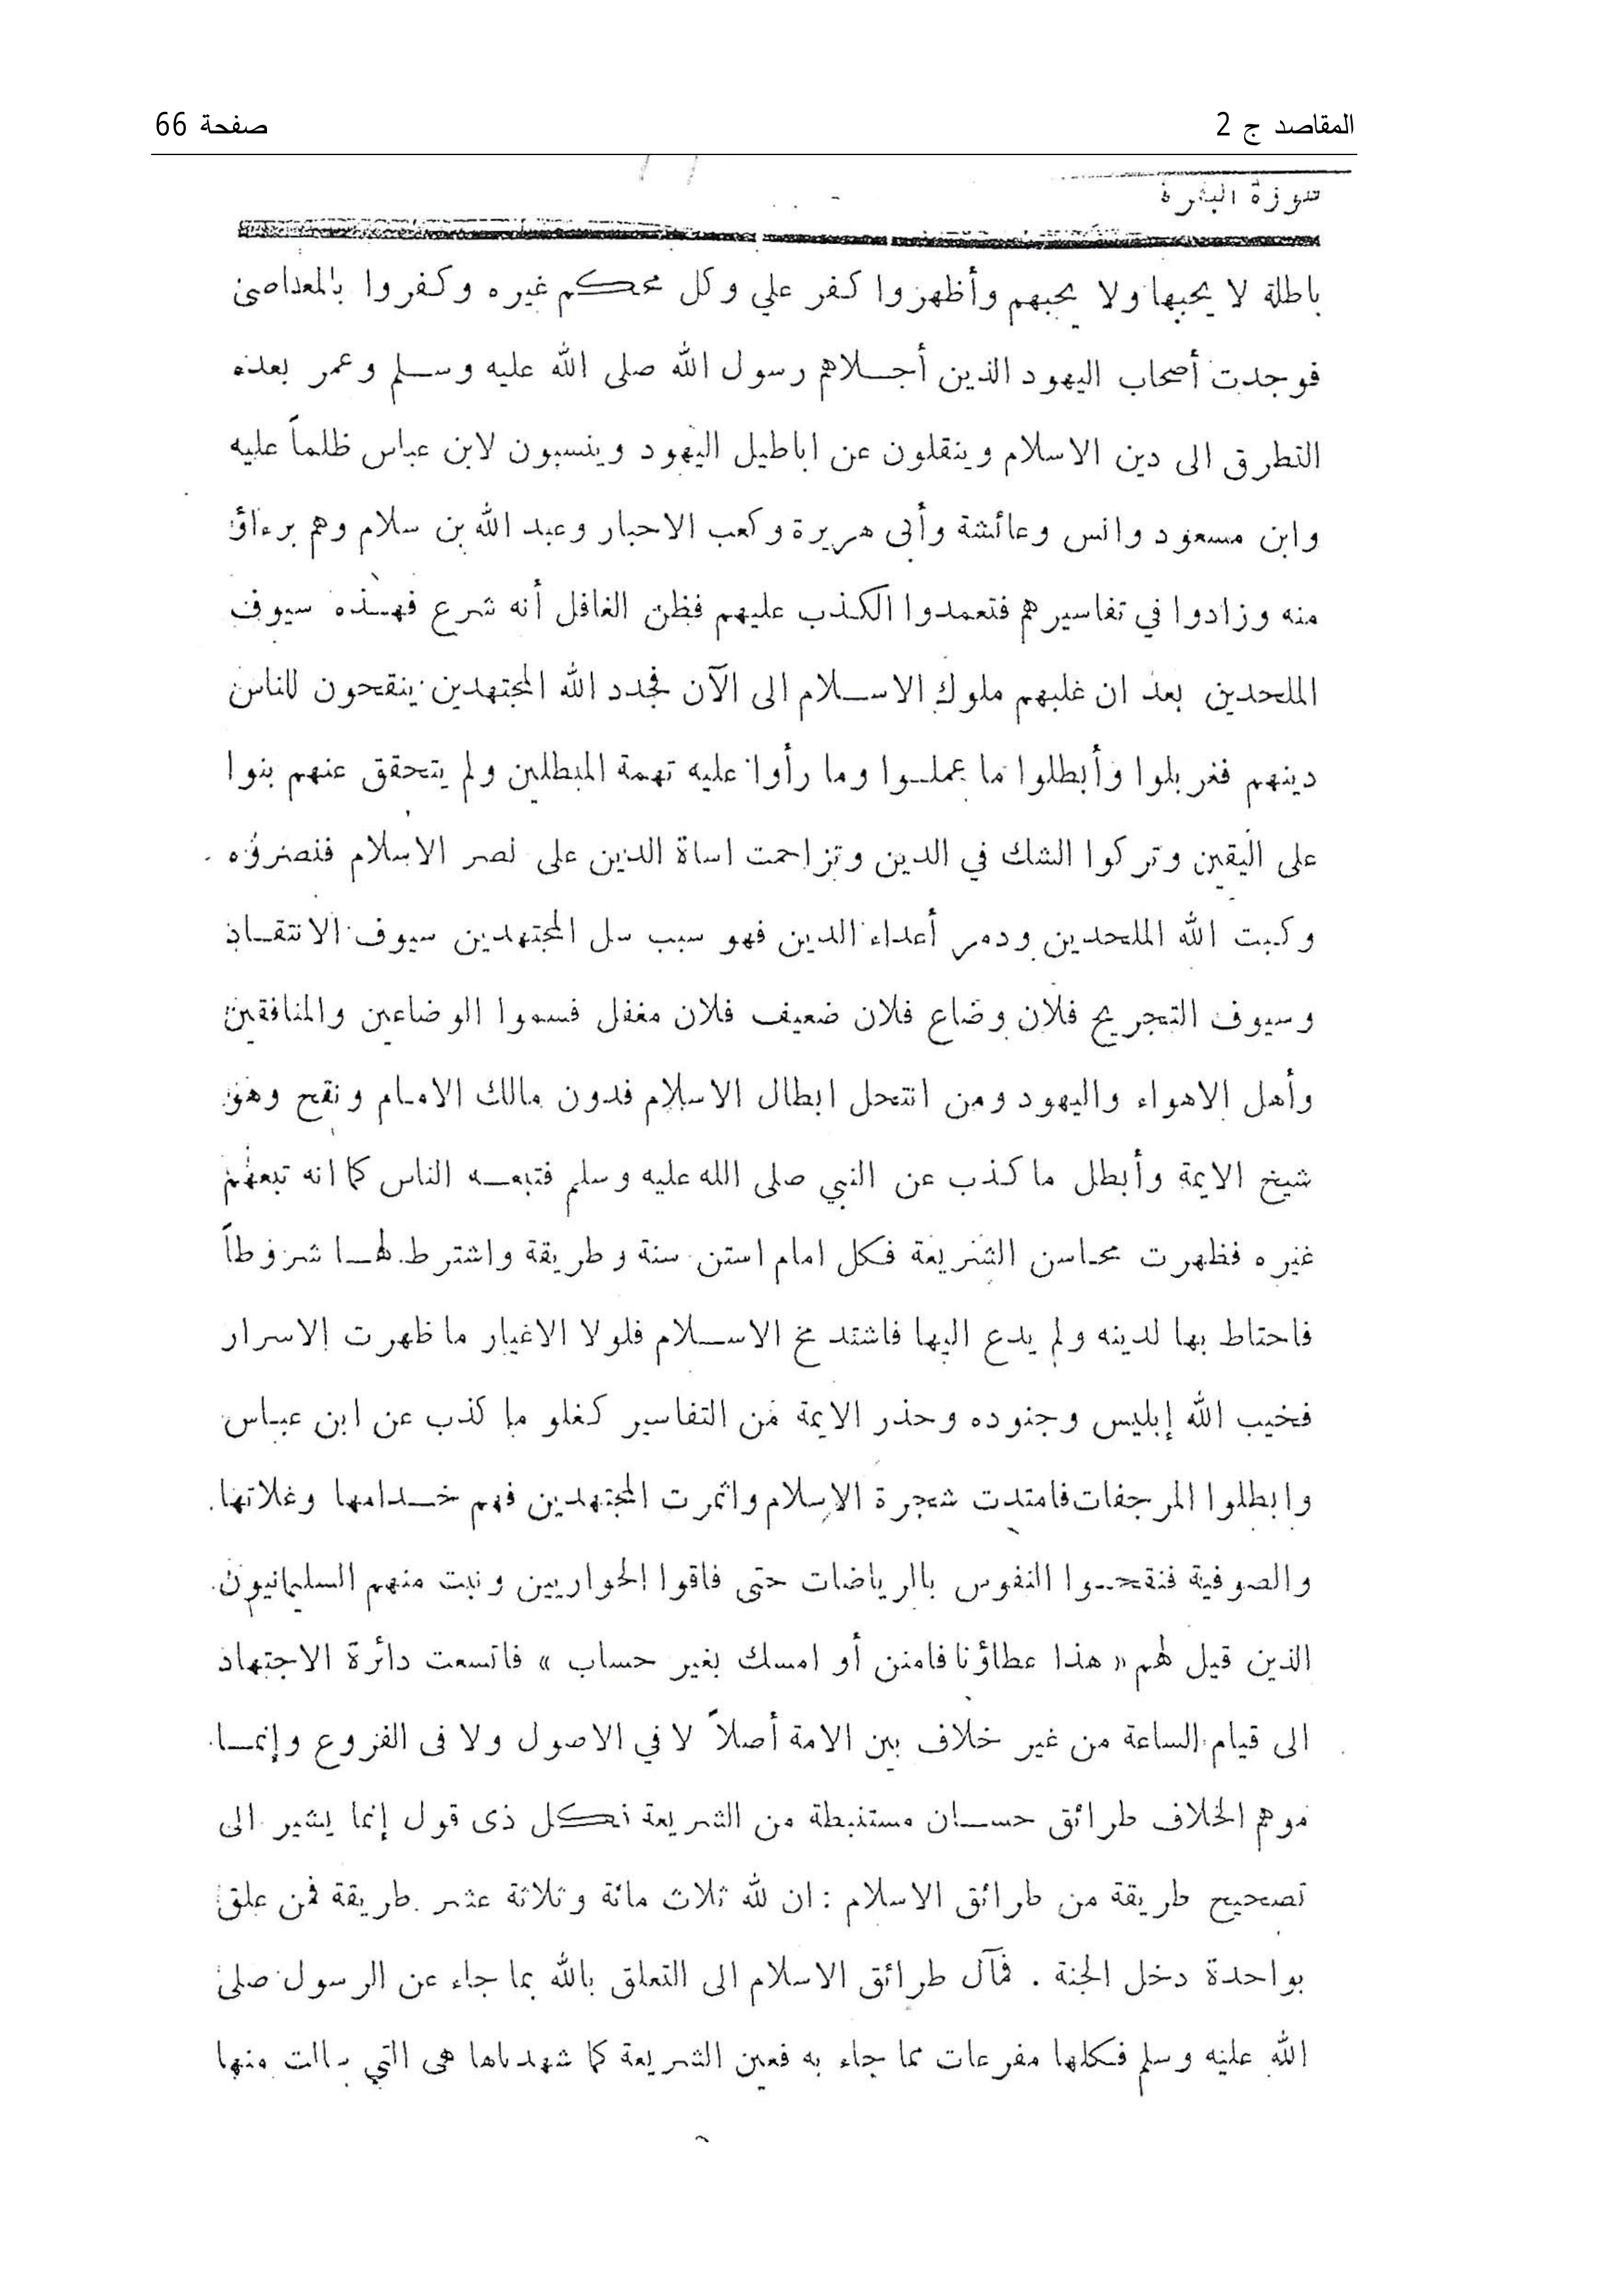 المقاصد ج 2
صفحة 66
سورة البقرة
باطلة لا يحبها ولا يحبهم وأظهروا كفر علي وكل محكم غيره وكفروا بالمعاصى
فوجدت أصحاب اليهود الذين أجلاهم رسول الله صلى الله عليه وسلم وعمر بعده
التطرق الى دين الاسلام وينقلون عن اباطيل اليهود وينسبون لابن عباس ظلماً عليه
وابن مسعود وانس وعائشة وأبى هريرة وكعب الاحبار وعبد الله بن سلام وهم برءاؤ
منه وزادوا في تفاسيرهم فتعمدوا الكذب عليهم فظن الغافل أنه شرع فهذه سيوف
الملحدين بعد ان غلبهم ملوك الاسلام الى الآن فجدد الله المجتهدين ينقحون للناس
دينهم فغربلوا وأبطلوا ما عملوا وما رأوا عليه تهمة المبطلين ولم يتحقق عنهم بنوا
على اليقين وتركوا الشك في الدين وتزاحمت اساة الدين على نصر الاسلام فنصروه
وكبت الله الملحدين ودمر أعداء الدين فهو سبب سل المجتهدين سيوف الانتقاد
وسيوف التجريح فلان وضاع فلان ضعيف فلان مغفل فسموا الوضاعين والمنافقين
وأهل الاهواء واليهود ومن انتحل ابطال الاسلام فدون مالك الامام ونقح وهو
شيخ الايمة وأبطل ما كذب عن النبي صلى الله عليه وسلم فتبعه الناس كما انه تبعهم
غيره فظهرت محاسن الشريعة فكل امام استن سنة وطريقة واشترط لهـا شروطاً
فاحتاط بها لدينه ولم يدع اليها فاشتد مخ الاسلام فلولا الاغيار ما ظهرت الاسرار
فخيب الله إبليس وجنوده وحذر الايمة من التفاسير كغلو ما كذب عن ابن عباس
وابطلوا المرجفات فامتدت شجرة الاسلام واثمرت المجتهدين فهم خدامها وغلاتها
والصوفية فنقحوا النفوس بالرياضات حتى فاقوا الحواريين ونبت منهم السليمانيون
الذين قيل لهم « هذا عطاؤنا فامنن أو امسك بغير حساب » فاتسعت دائرة الاجتهاد
الى قيام الساعة من غير خلاف بين الامة أصلاً لا في الاصول ولا فى الفروع وإنمـا
موهم الخلاف طرائق حسان مستنبطة من الشريعة فكل ذى قول إنما يشير الى
تصحيح طريقة من طرائق الاسلام : ان لله ثلاث مائة وثلاثة عشر طريقة فمن علق
بواحدة دخل الجنة . فمآل طرائق الاسلام الى التعلق بالله بما جاء عن الرسول صلى
الله عليه وسلم فكلها مفرعات مما جاء به فعين الشريعة كما شهدناها هى التي سالت منها